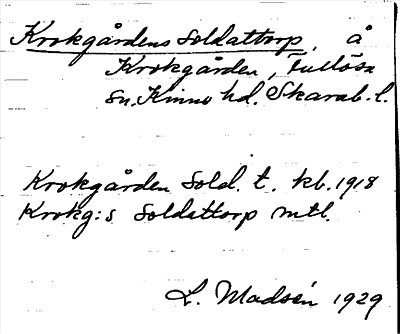 Krokgårdens soldattorp, å
Krokgården, Fullösa
sn. Kinne hd. Skarab. l.
Krokgården Sold. t. kb. 1918
Krokg:s Soldattorp mtl.
L. Madsén 1929